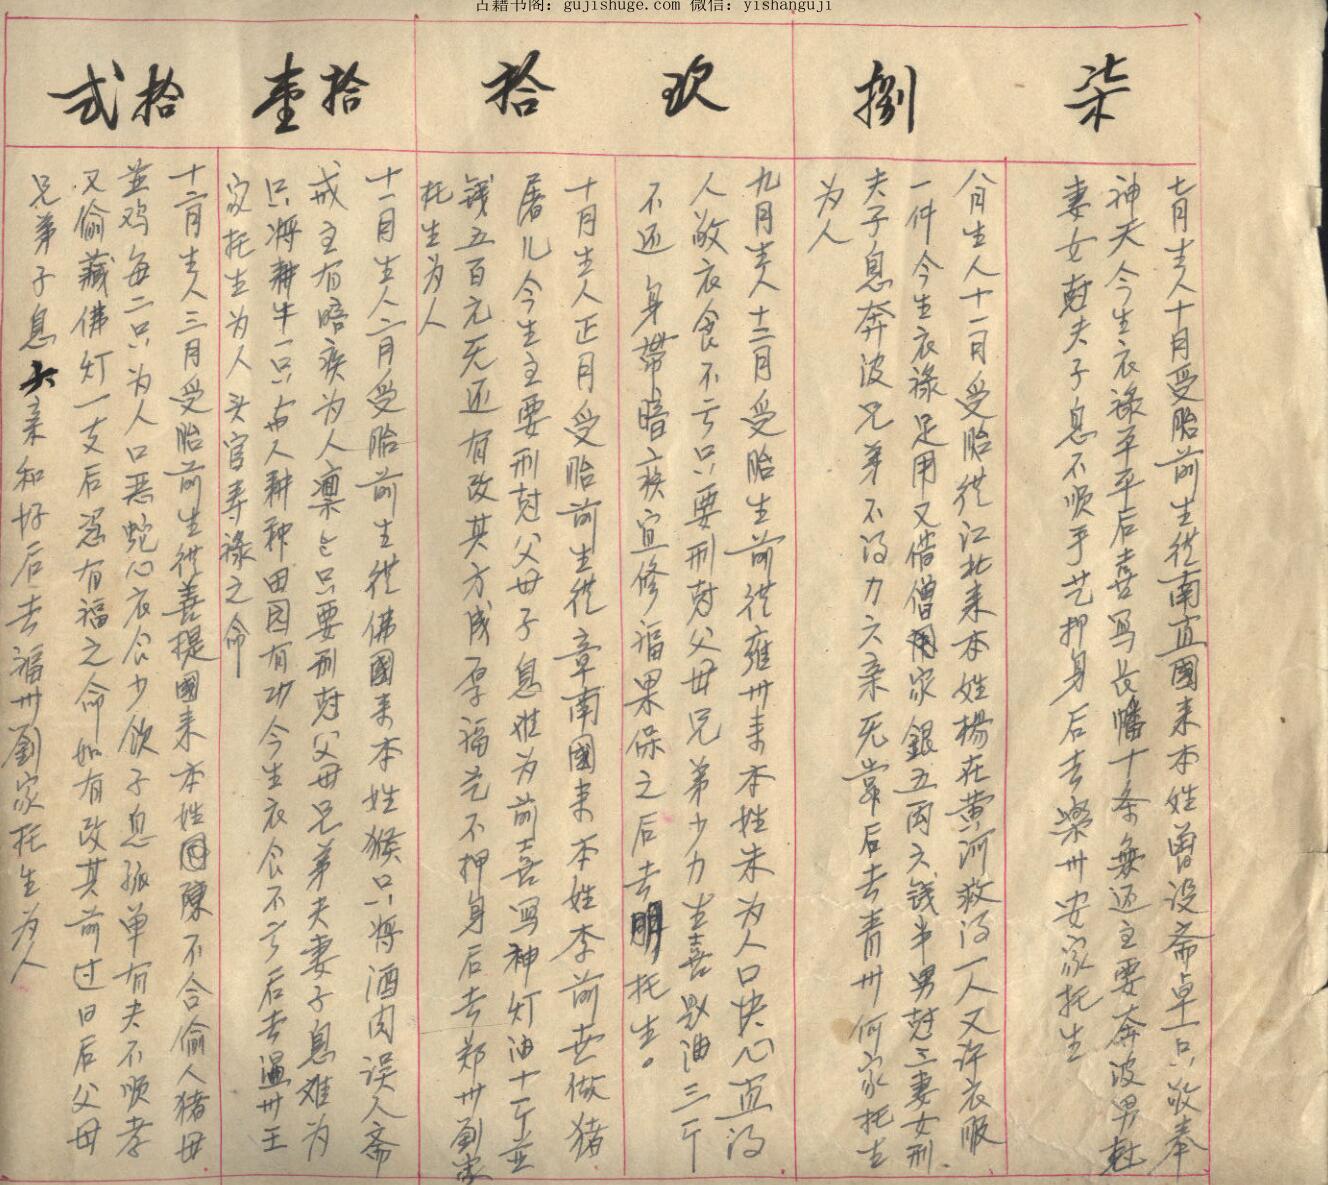 古籍书阁：gujishuge.com 微信：yishanguji
柒
七月生人十月受胎前生從南直國来本姓曾设斋卓一只敬奉
神天今生衣禄平平后喜写长幡十条無还主要奔波男尅
妻女尅夫子息不顺手艺押身后去 卅安家托生
捌
八月生人十一月受胎從江北来本姓楊在黄河救得一人又许衣服
一件今生衣禄足用又借僧家銀五两六钱半男尅三妻女刑
夫子息奔波兄弟不得力六亲无靠后去青卅何家托生
为人
玖
九月生人十二月受胎生前從雍卅来本姓朱为人口快心直得
人敬衣食不亏只要刑尅父母兄弟少力生喜 油三斤
不还身帶暗疾宜修福果保之后去明 托生。
拾
十月生人正月受胎前生從章南國来本姓李前世做猪
屠儿今生主要刑尅父母子息难为前喜写神灯油十斤並
钱五百元无还有改其方成厚福艺不押身后去郑卅劉家
托生为人
拾壹
十一月生人二月受胎前生從佛國来本姓猴只將酒肉误人斋
戒主有暗疾为人 只要刑尅父母兄弟夫妻子息难为
只將耕牛一只与人耕种田园有功今生衣食不亏后去温卅王
家托生为人头官寿禄之命
拾弍
十二月生人三月受胎前生從善提國来本姓陳不合偷人猪母
並鸡每二只为人口恶蛇心衣食少欽子息孤单有夫不顺孝
又偷藏佛灯一支后 有福之命如有改其前过日后父母
兄弟子息六亲和好后去福卅劉家托生为人